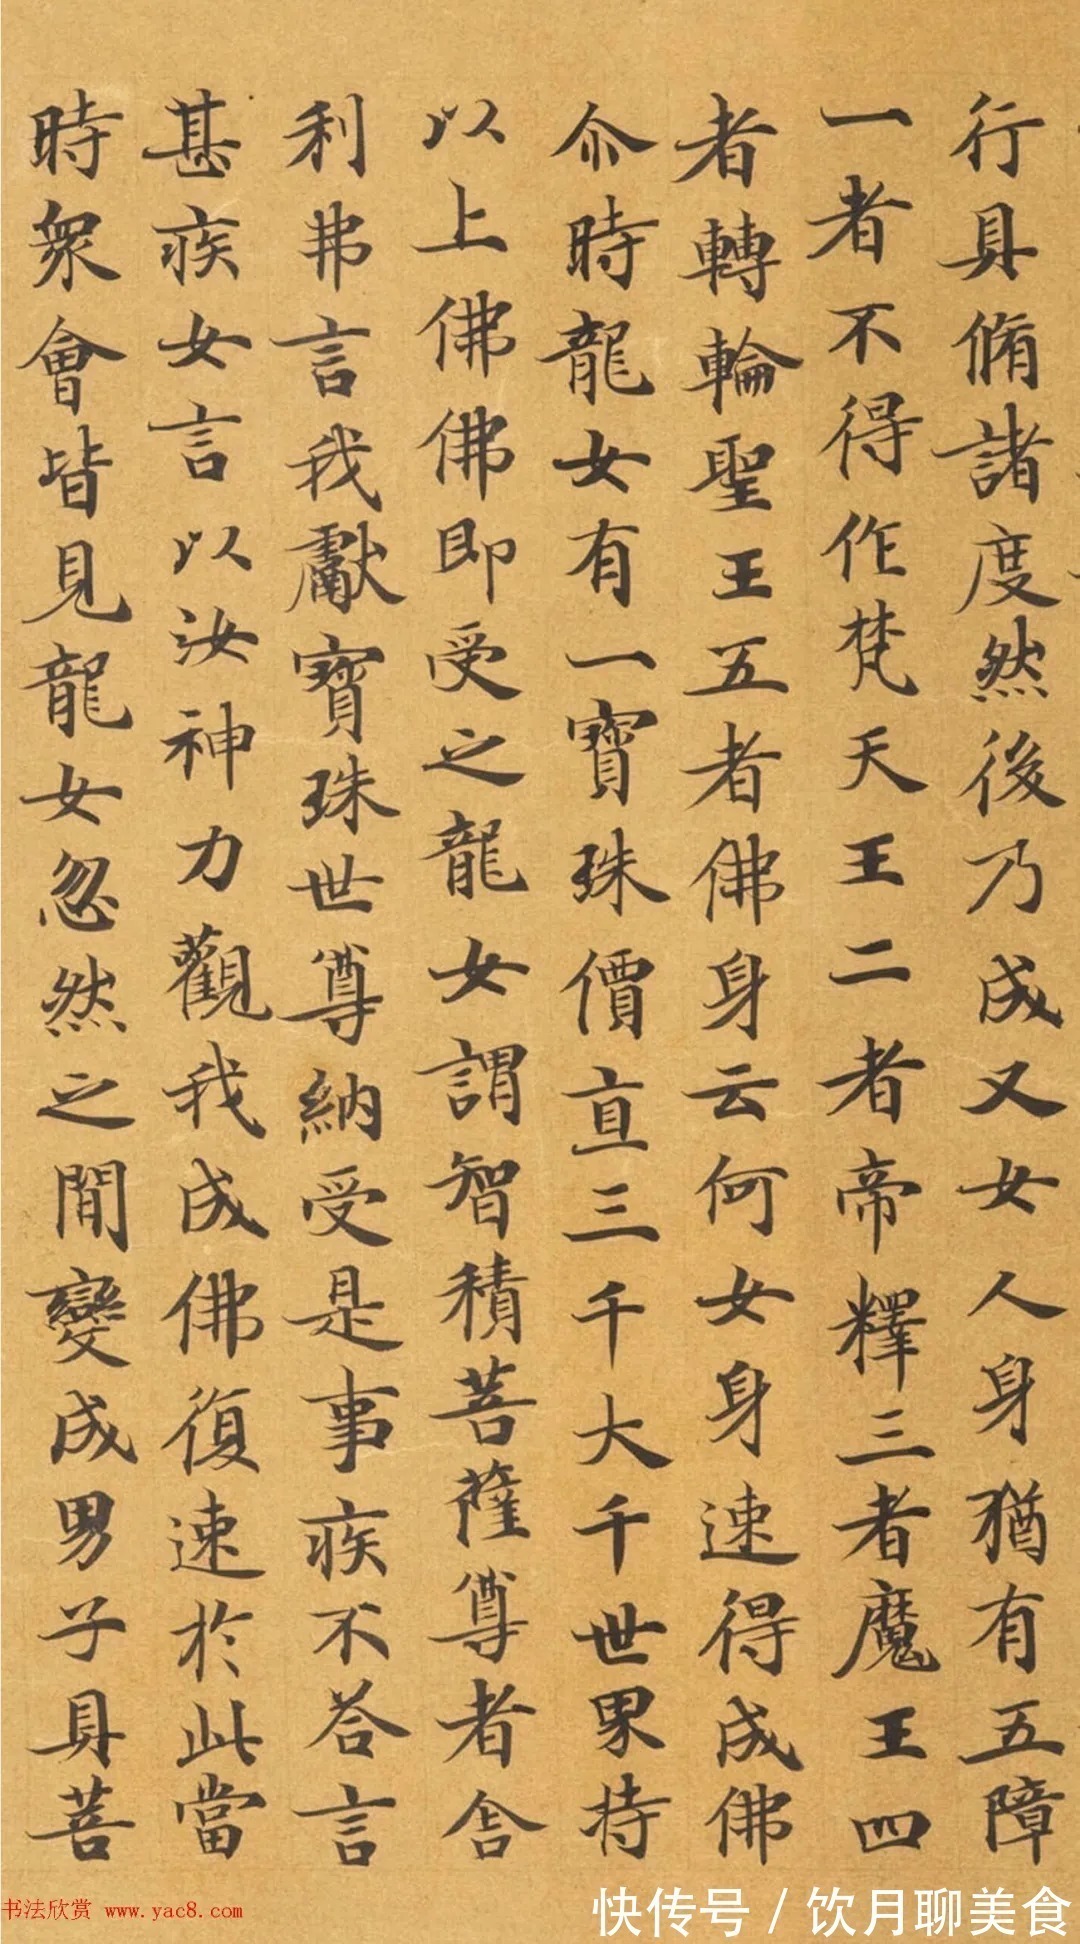 行具脩諸度然後乃成又女人身猶有五障
一者不得作梵天王二者帝釋三者魔王四
者轉輪聖王五者佛身云何女身速得成佛
尒時龍女有一寶珠價直三千大千世界持
以上佛佛即受之龍女謂智積菩薩尊者舍
利弗言我獻寶珠世尊納受是事疾不荅言
甚疾女言以汝神力觀我成佛復速於此當
時衆會皆見龍女忽然之閒變成男子具菩
书法欣赏 www.yac8.com
快传号 / 饮月聊美食